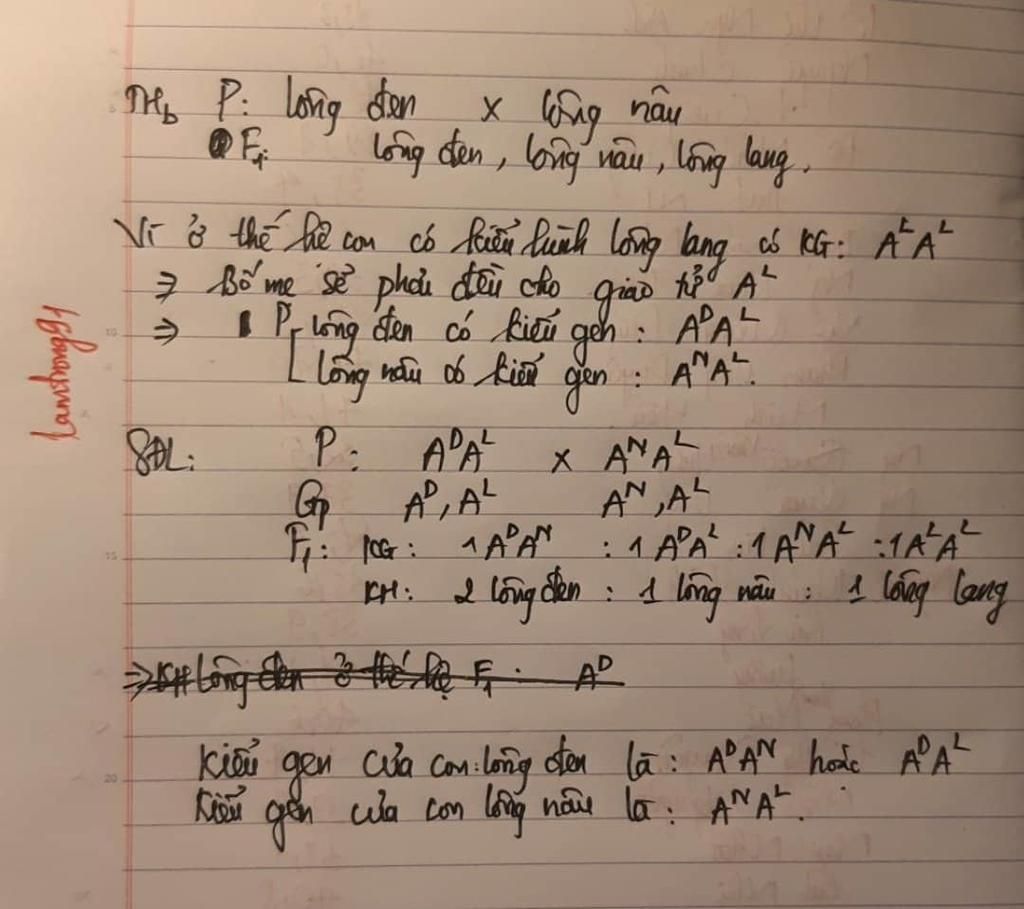 THb P: lông đen x lông nâu
F1: lông đen, lông nâu, lông lang.
Vì ở thế hệ con có kiểu hình lông lang có KG: A^L A^L
⇒ Bố mẹ sẽ phải đều cho giao tử A^L
⇒ P lông đen có kiểu gen: A^D A^L
lông nâu có kiểu gen: A^N A^L.
SĐL: P: A^D A^L x A^N A^L
Gp A^D, A^L A^N, A^L
F1: KG: 1 A^D A^N : 1 A^D A^L : 1 A^N A^L : 1 A^L A^L
KH: 2 lông đen : 1 lông nâu : 1 lông lang
⇒ KH lông đen ở thế hệ F1: A^D
Kiểu gen của con lông đen là: A^D A^N hoặc A^D A^L
Kiểu gen của con lông nâu là: A^N A^L.
lamtrong91